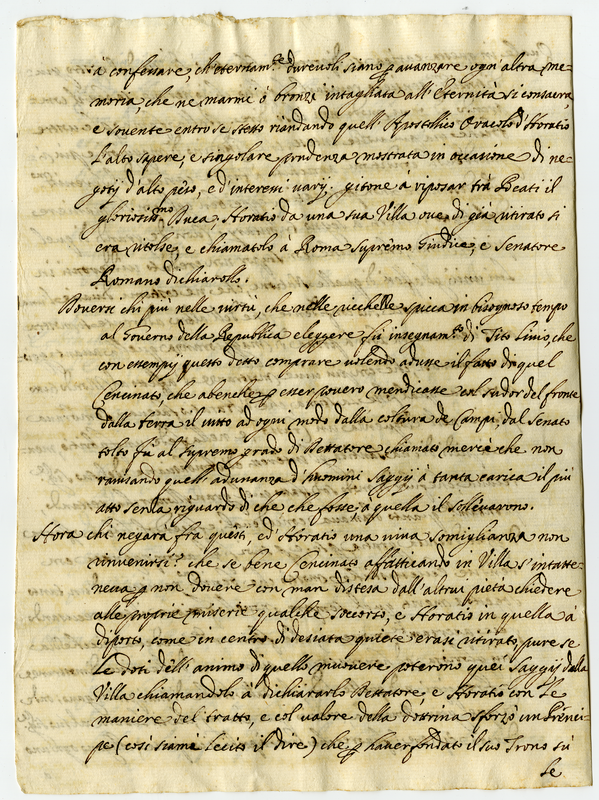 a confessare, ch'eternam.te durevoli siano p avanzare ogn'altra me-
moria, che ne marmi ò bronzi intagliata all'Eternità si consacra,
e sovente entro se stesso riandando quell'Apostolico Oracolo d'Horatio
l'alto sapere, e singolare prudenza mostrata in occasione di ne-
gotij d'alto peso, e d'interessi varij. gitone à riposar trà Beati il
gloriosiss.mo Duca Horatio da una sua Villa ove di già ritirato si
era ritolse, e chiamatolo à Roma Supremo Giudice, e Senatore
Romano dichiarollo.
Doversi chi più nelle virtù, che nelle ricchezze spicca in bisognoso tempo
al Governo della Republica eleggere fù insegnam.to di Tito Livio, che
con essempij questo detto comprare volendo adusse il fatto di quel
Cencinato, che abenche p esser povero mendicasse col sudor del fronte
dalla terra il vitto ad ogni modo dalla coltura de Campi, dal Senato
tolto fù al Supremo grado di Dettatore chiamato mercè che non
ravisando quell'adunanza d'huomini Saggij à tanta carica il più
atto senza riguardo di che che fosse, a quella il sollevarono.
Hora chi negara fra questi, ed'Horatio una viva somiglianza non
rinvenirsi? che se bene Cencinato affatticando in Villa s'intratte-
neva p non dovere con man distesa dall'altrui pietà chiedere
alle proprie miserie qualche soccorso, e Horatio in quella à
diporto, come in centro di desiata quiete erasi ritirato, pure se
le doti dell'animo di quello muovere poterono quei Saggij dalla
Villa chiamandolo à dichiararlo Dettatore, e Horatio con le
maniere del tratto, e col valore della dottrina sforzò un Prenci-
pe (così siami lecito il dire) che p haver fondato il suo Trono sù
le